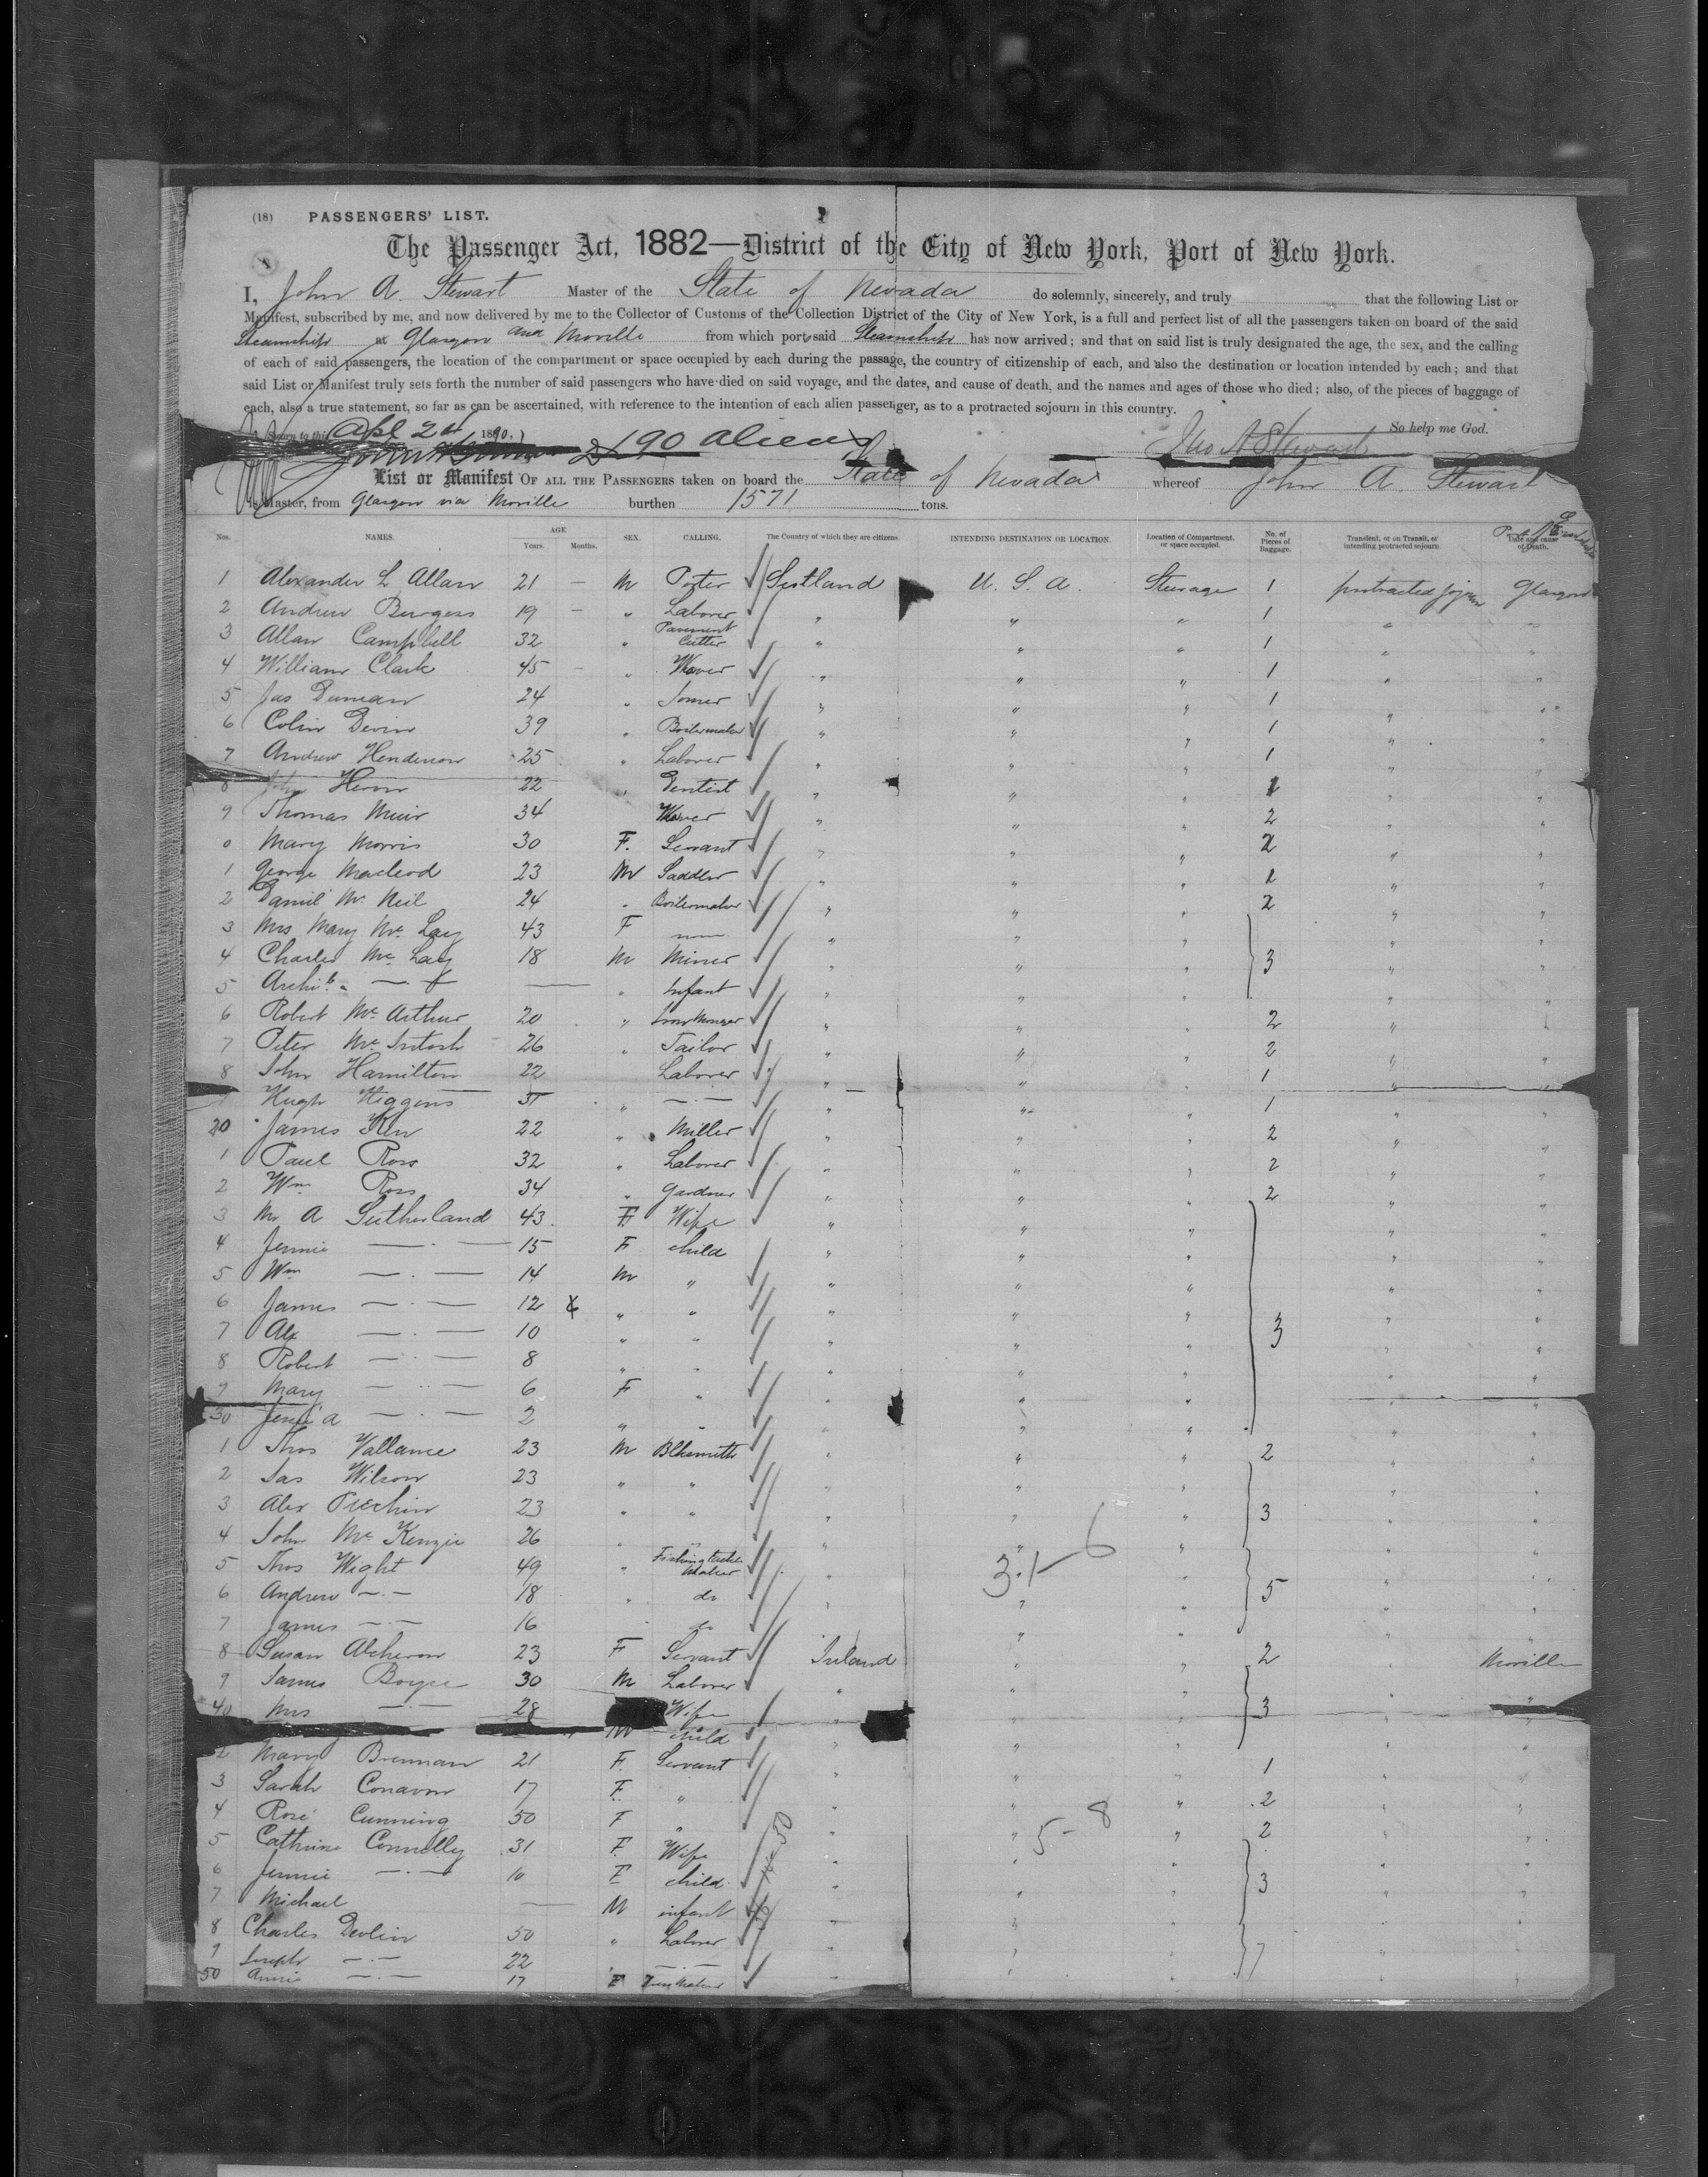 (18) PASSENGERS' LIST.
The Passenger Act, 1882—District of the City of New York, Port of New York.
I, John A. Stewart Master of the State of Nevada do solemnly, sincerely, and truly that the following List or
Manifest, subscribed by me, and now delivered by me to the Collector of Customs of the Collection District of the City of New York, is a full and perfect list of all the passengers taken on board of the said
Steamship at Glasgow and Moville from which port said Steamship has now arrived; and that on said list is truly designated the age, the sex, and the calling
of each of said passengers, the location of the compartment or space occupied by each during the passage, the country of citizenship of each, and also the destination or location intended by each; and that
said List or Manifest truly sets forth the number of said passengers who have died on said voyage, and the dates, and cause of death, and the names and ages of those who died; also, of the pieces of baggage of
each, also a true statement, so far as can be ascertained, with reference to the intention of each alien passenger, as to a protracted sojourn in this country.
So help me God.
Sworn to this Apl 24 1890. 190 Aliens Jno A Stewart
List or Manifest OF ALL THE PASSENGERS taken on board the State of Nevada whereof John A. Stewart
is Master, from Glasgow via Moville burthen 1571 tons.
Nos. NAMES. AGE Years. Months. SEX. CALLING. The Country of which they are citizens. INTENDING DESTINATION OR LOCATION. Location of Compartment, or space occupied. No. of Pieces of Baggage. Transient, or on Transit, or intending protracted sojourn. Date and cause of Death.
1 Alexander L Allan 21 — M Porter Scotland U. S. A. Steerage 1 protracted sojourn Glasgow
2 Andrew Burgess 19 — " Laborer " " " 1 " "
3 Allan Campbell 32 " Pavement Cutter " " " 1 " "
4 William Clark 45 — " " " " 1 " "
5 Jas Duncan 24 " " " " 1 " "
6 Colin Devin 39 " Boilermaker " " " 1 " "
7 Andrew Henderson 25 " Laborer " " " 1 " "
8 John 22 " Dentist " " " " "
9 Thomas Muir 34 " " " 2 " "
0 Mary Morris 30 F. Servant " " " 2 " "
1 George Macleod 23 M Saddler " " " 1 " "
2 Daniel Mc Neil 24 " Boilermaker " " " 2 " "
3 Mrs Mary Mc Lay 43 F " " " " "
4 Charles Mc Lay 18 M Miner " " " 3 " "
5 Archib. — " — — " Infant " " " " "
6 Robert Mc Arthur 20 " Iron Monger " " " 2 " "
7 Peter Mc Intosh 26 " Tailor " " " 2 " "
8 John Hamilton 22 Laborer " " " 1 " "
Hugh Higgens " — · — " " " 1 " "
20 James Kerr 22 " Miller " " " 2 " "
1 Paul Ross 32 " Laborer " " " 2 " "
2 Wm Ross 34 " Gardner " " " 2 " "
3 Mrs A Sutherland 43. F. Wife " " " " "
4 Jennie — · — 15 F child " " " " "
5 Wm — · — 14 M " " " " " "
6 James — · — 12 " " " " " " "
7 Alx — · — 10 " " " " " 3 " "
8 Robert — · — 8 " " " " " " "
9 Mary — · — 6 F " " " " " "
30 — · — 2 " " " " " " "
1 Thos Vallance 23 M Blksmith " " " 2 " "
2 Jas Wilson 23 " " " " " " "
3 Alex 23 " " " " " 3 " "
4 John Mc Kenzie 26 " " " " " " "
5 Thos Wight 49 " Fishing tackle Maker " " " "
6 Andrew — · — 18 " do " " " 5 "
7 James — · — 16 do " " " "
8 Susan 23 F Servant Ireland " " 2 " Moville
9 James Boyce 30 M Laborer " " " "
40 Mrs — · — 28 Wife " " " 3 " "
M child " " " "
2 Mary Brennan 21 F. Servant " " " 1 "
3 Sarah 17 F. " " " " 2 " "
4 Rose Cunning 50 F " " " " 2 " "
5 Cathrine Connelly 31 F. Wife " " " " "
6 Jennie — · — 10 F child " " " 3 " "
7 Michael — M infant " " " " "
8 Charles Devlin 50 " Laborer " " " " "
9 Joseph — · — 22 " — · — " " " 7 " "
50 Annie — · — 17 F " " " " "